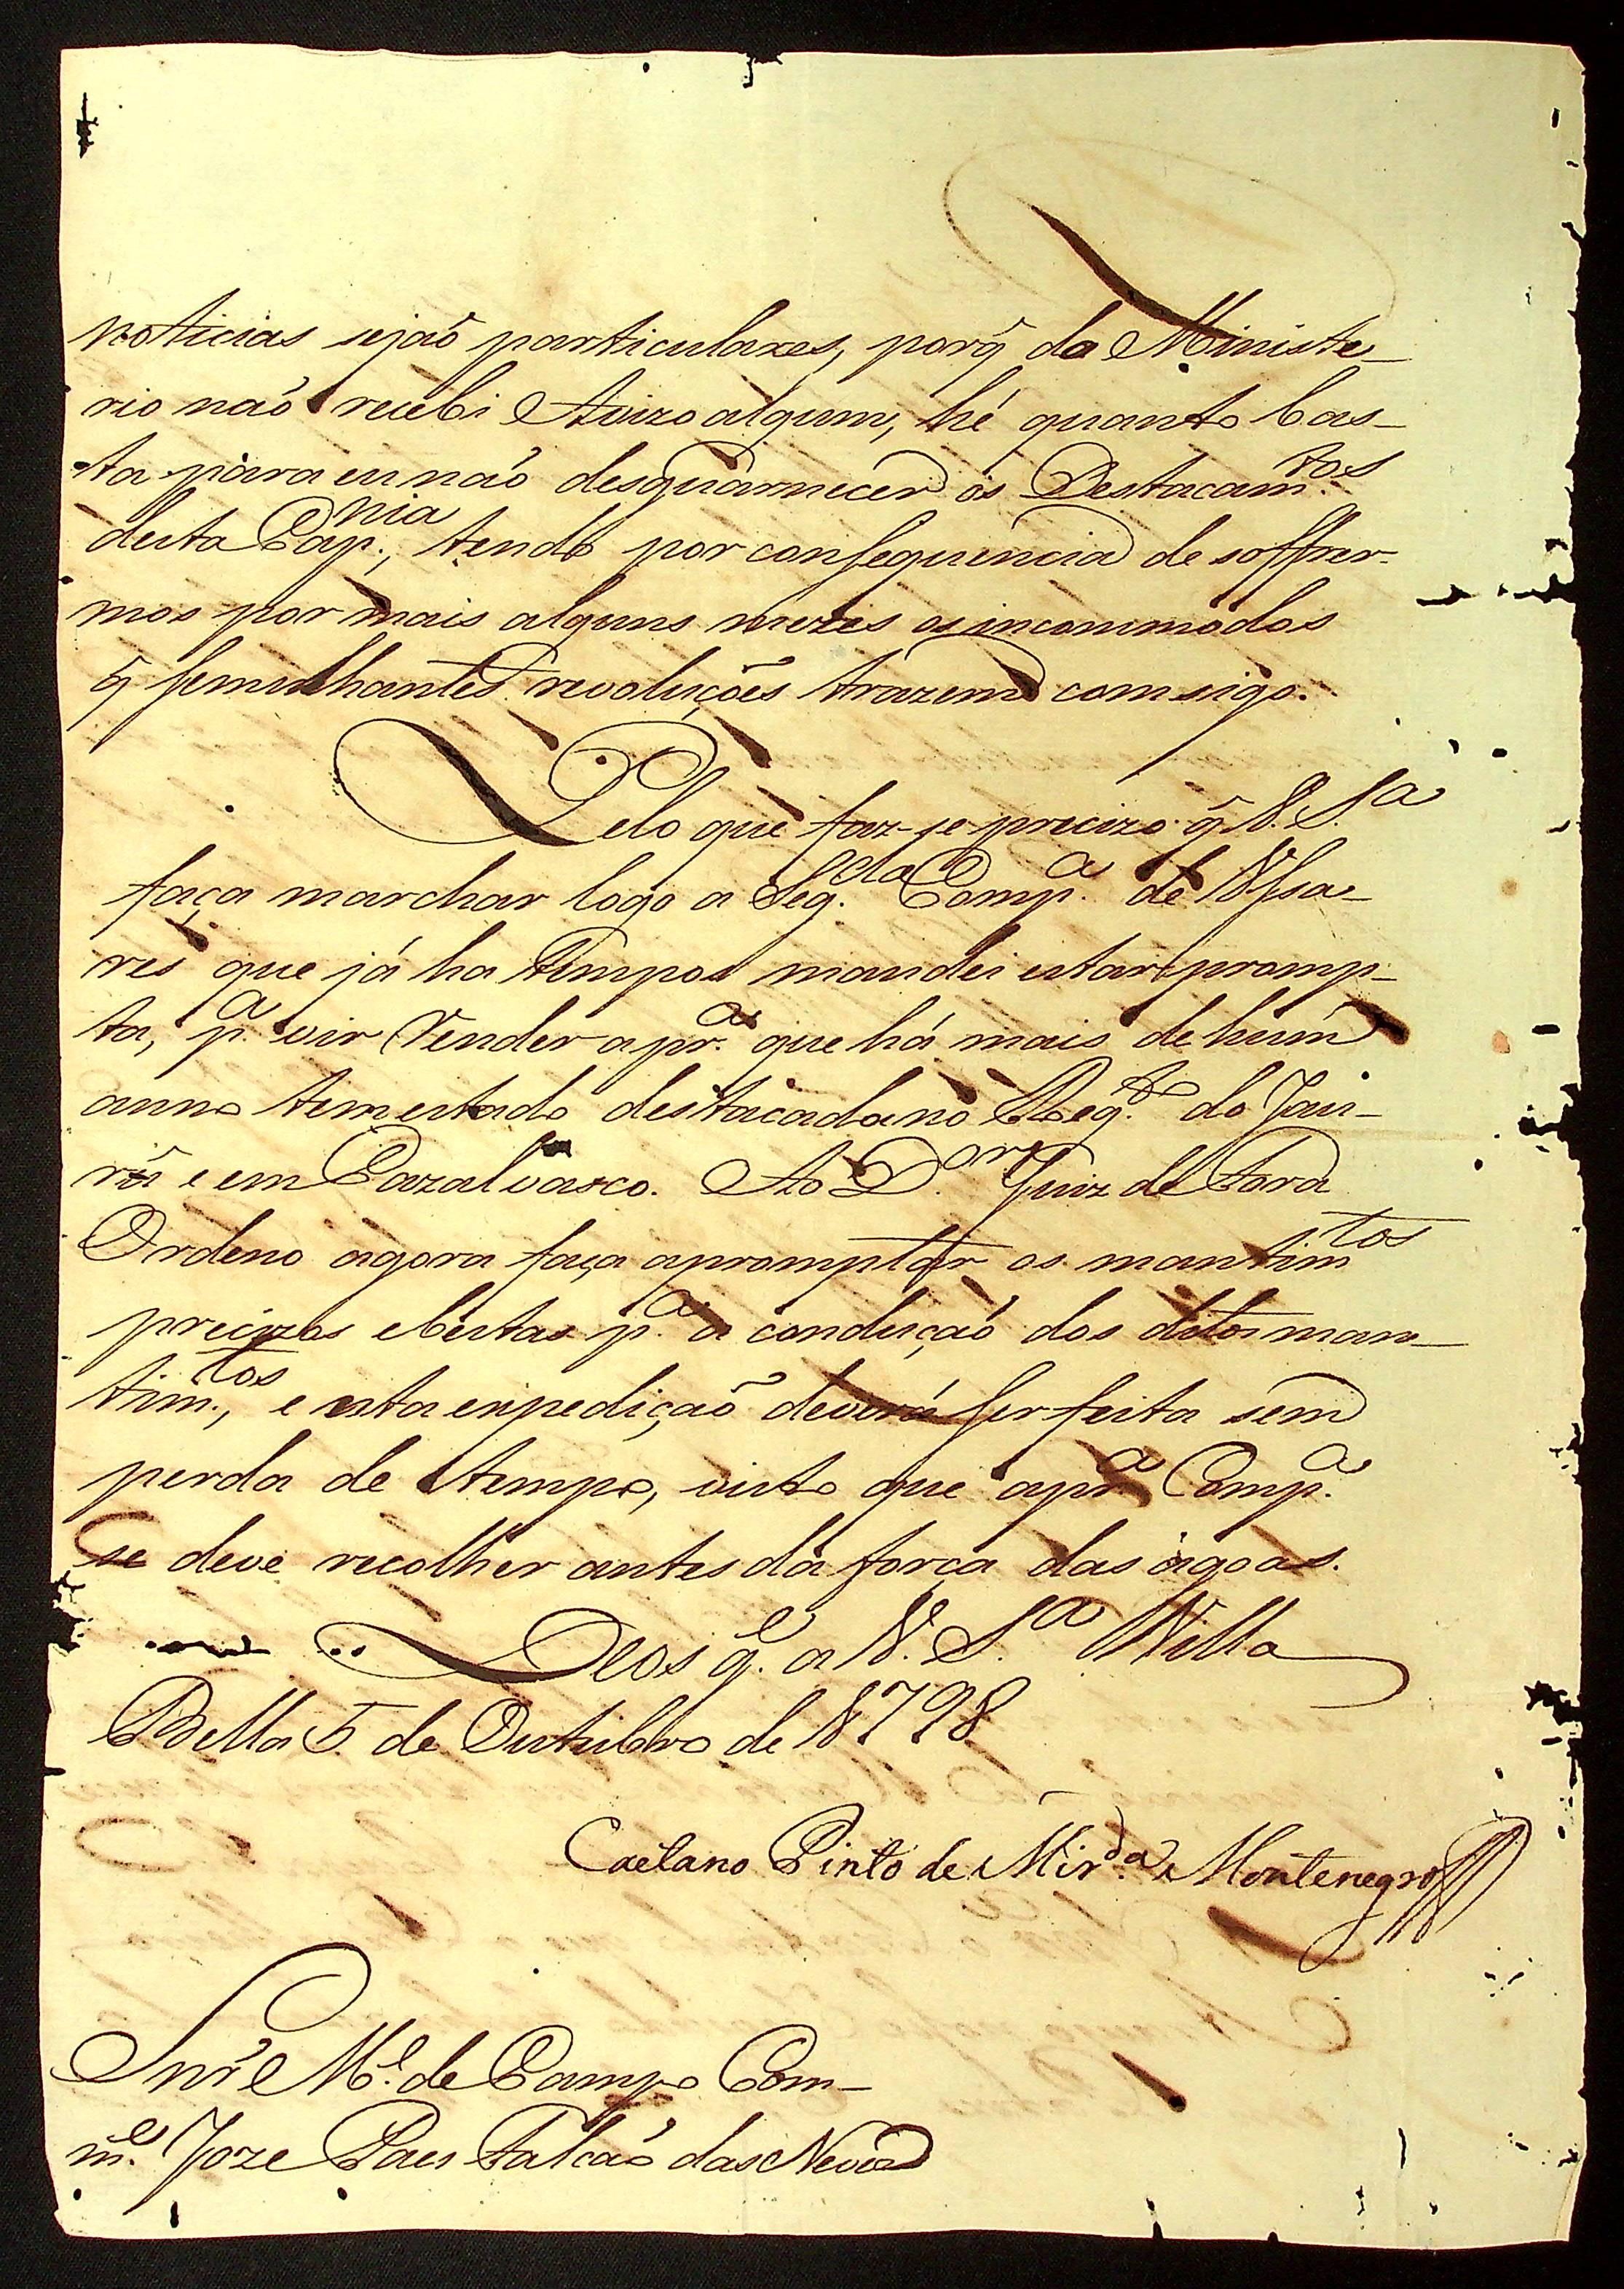 noticias sejaõ particulares, porq̃ do Ministe-
rio naõ recebi Avizo algum, hé quanto bas-
ta para eu naõ desguarnecer os Destacam.tos
desta Cap.nia, tendo por consequencia de soffrer-
mos por mais alguns mezes os incommodos
q̃ semelhantes revoluções trazem comsigo.
Pelo que faz-se precizo q̃ V. S.a
faça marchar logo a Seg.da Comp.a de Ussa-
res que já ha tempos mandei estar promp-
ta, p.a vir render a pr.a que há mais de hum
anno tem estado destacada no Reg.to do Jau-
rú e em Cazalvasco. Ao D.or Juiz de Fora
Ordeno agora faça apromptar os mantim.tos
precizos e bestas p.a a conducçaõ dos ditos man-
tim.tos, e esta expediçaõ deverá ser feita sem
perda de tempo, visto que a pr.a Comp.a
se deve recolher antes da força das agoas.
Deos g.e a V. S.a Villa
Bella 5 de Outubro de 1798
Caetano Pinto de Mir.da Montenegro
Snr̃ M.e de Campo Com-
m.e Joze Paes Falcaõ das Neves